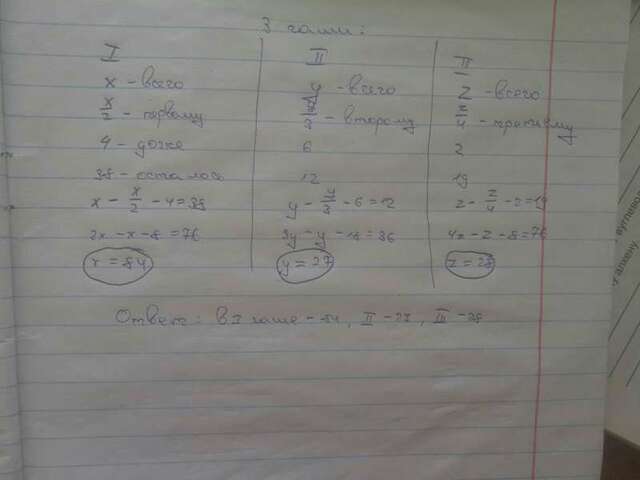 3 чаши:
I II III
x - всего y - всего z - всего
x/2 - первому y/3 - второму z/4 - третьему
4 - дочке 6 2
38 - осталось 12 19
x - x/2 - 4 = 38 y - y/3 - 6 = 12 z - z/4 - 2 = 19
2x - x - 8 = 76 3y - y - 18 = 36 4z - z - 8 = 76
x = 84 y = 27 z = 28
Ответ: в I чаше - 84, II - 27, III - 28